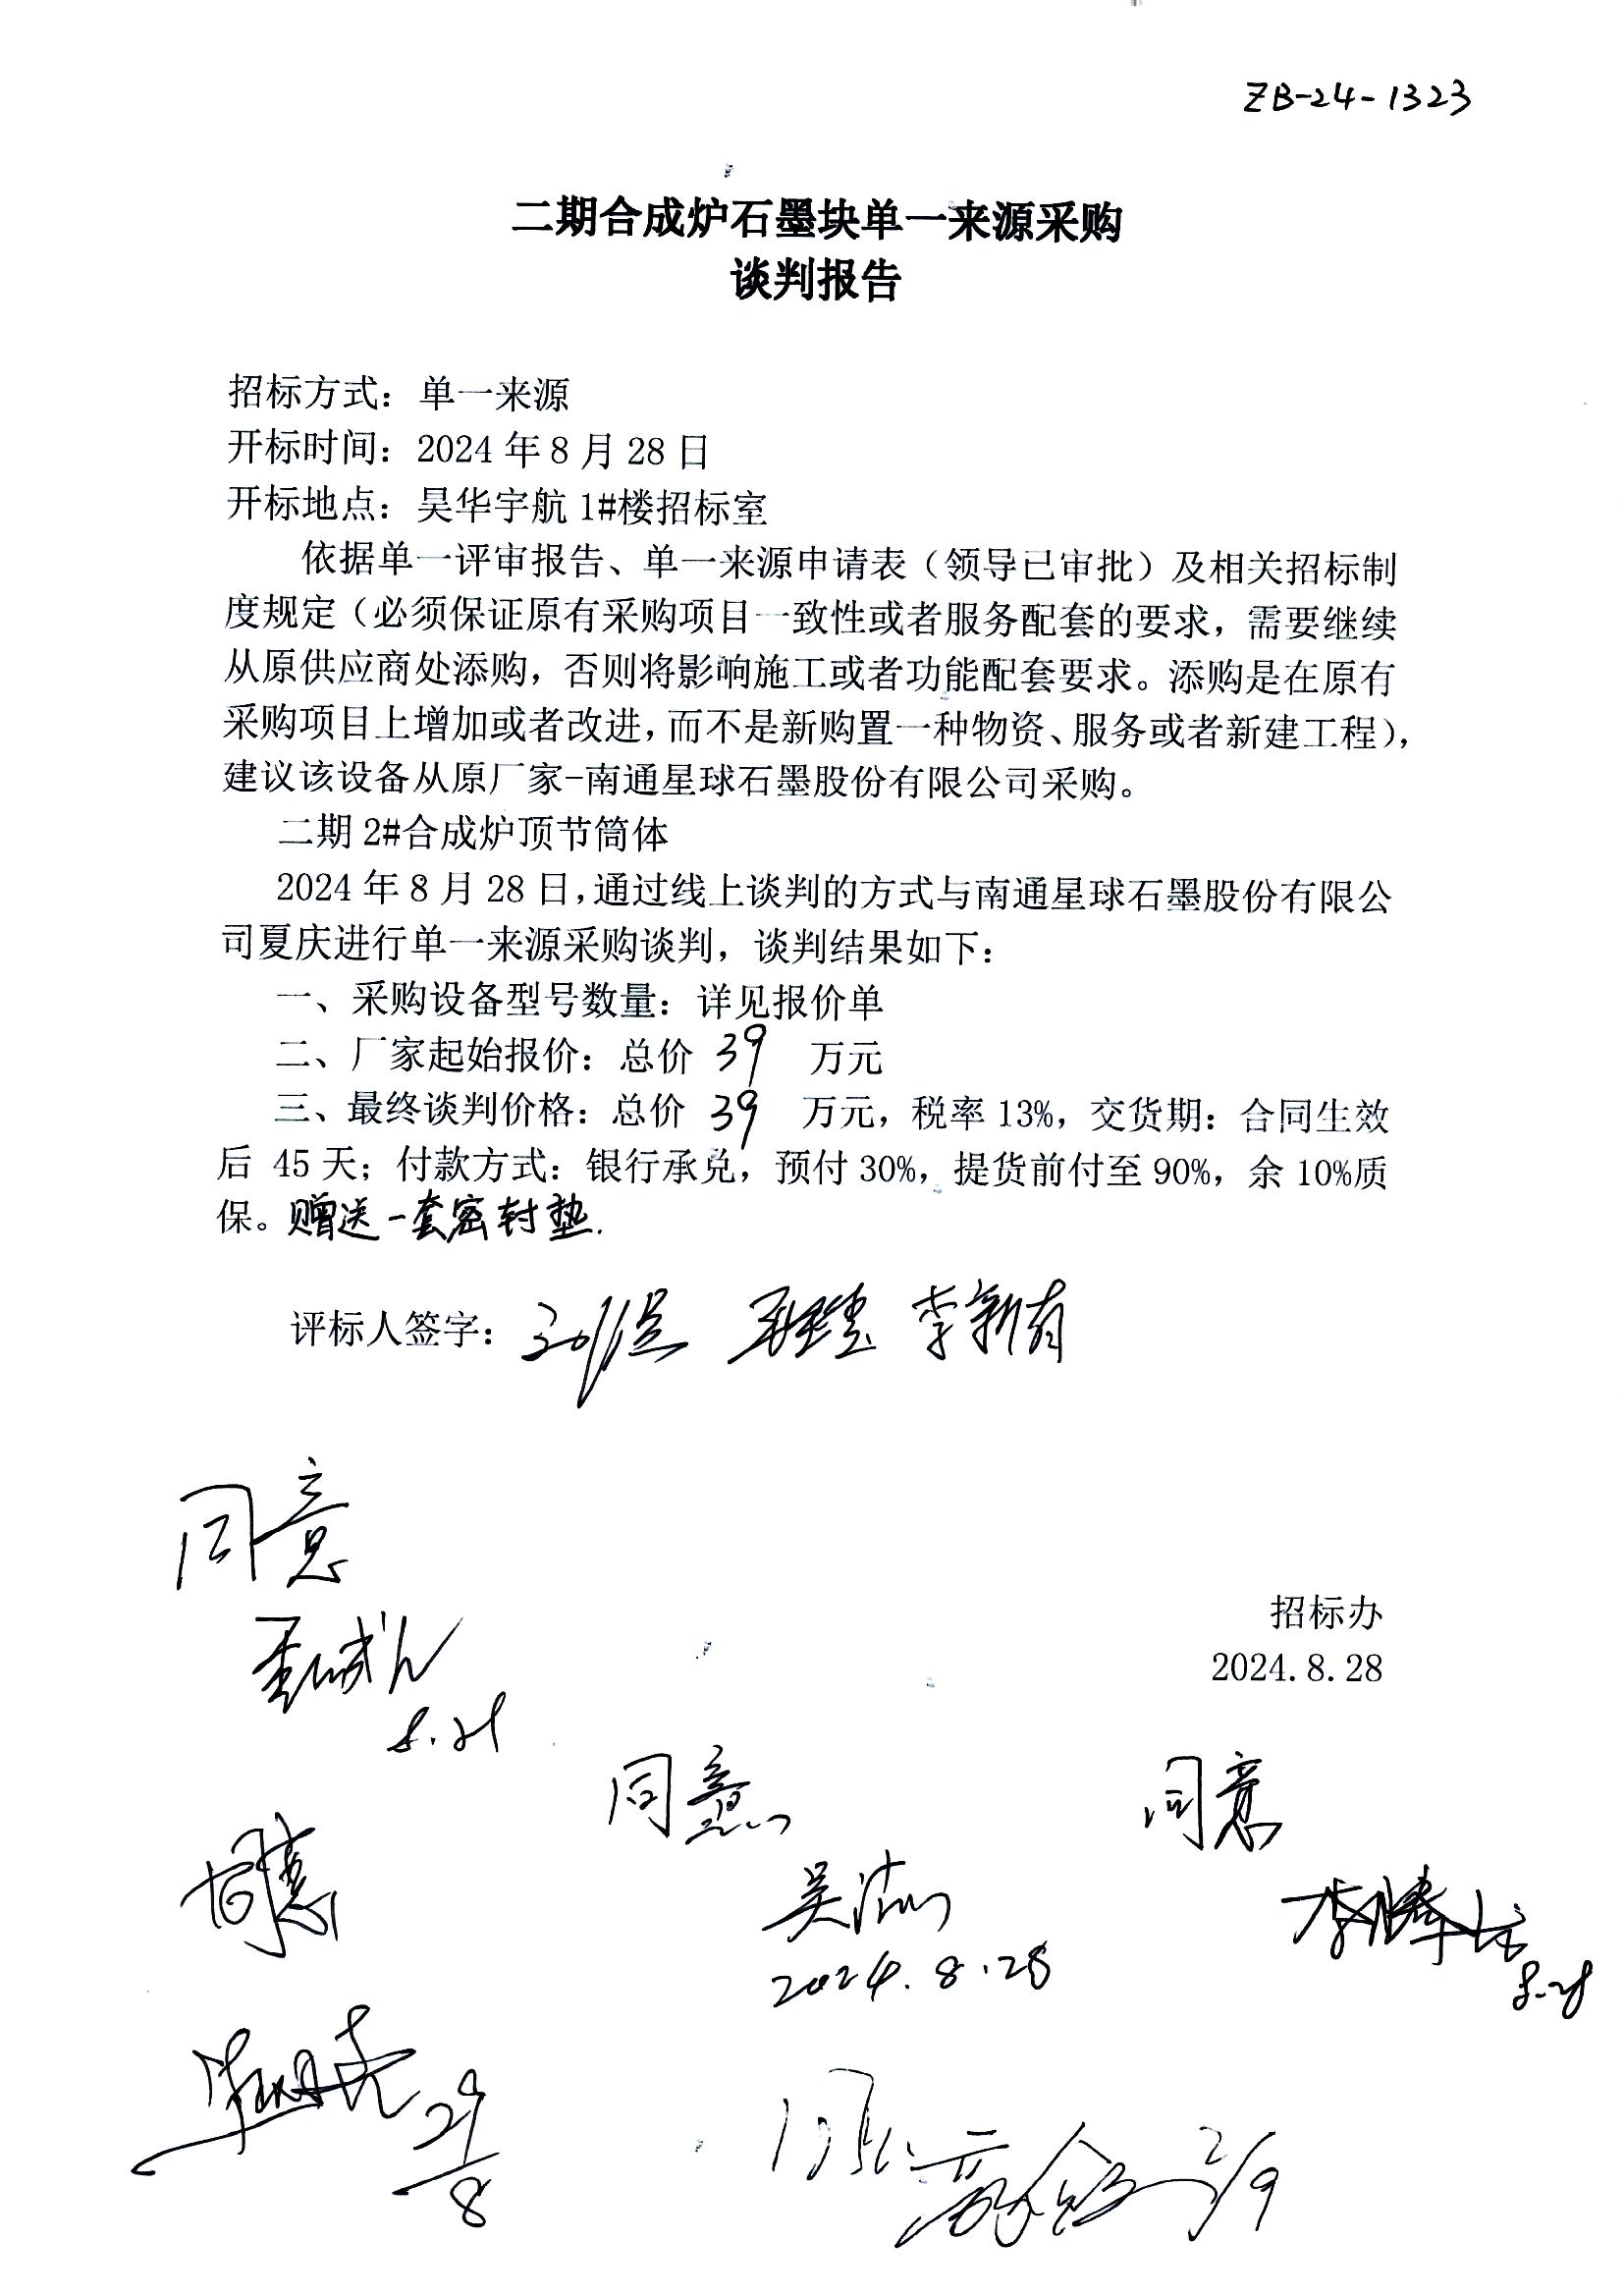 ZB-24-1323
二期合成炉石墨块单一来源采购
谈判报告
招标方式：单一来源
开标时间：2024 年 8 月 28 日
开标地点：昊华宇航 1#楼招标室
依据单一评审报告、单一来源申请表（领导已审批）及相关招标制
度规定（必须保证原有采购项目一致性或者服务配套的要求，需要继续
从原供应商处添购，否则将影响施工或者功能配套要求。添购是在原有
采购项目上增加或者改进，而不是新购置一种物资、服务或者新建工程），
建议该设备从原厂家-南通星球石墨股份有限公司采购。
二期 2#合成炉顶节筒体
2024 年 8 月 28 日，通过线上谈判的方式与南通星球石墨股份有限公
司夏庆进行单一来源采购谈判，谈判结果如下：
一、采购设备型号数量：详见报价单
二、厂家起始报价：总价 39 万元
三、最终谈判价格：总价 39 万元，税率 13%，交货期：合同生效
后 45 天；付款方式：银行承兑，预付 30%，提货前付至 90%，余 10%质
保。赠送一套密封垫.
评标人签字： 李新有
同意
招标办
2024.8.28
8.28
同意 同意
同意
2024.8.28
8.28
29/8
同意 2/9